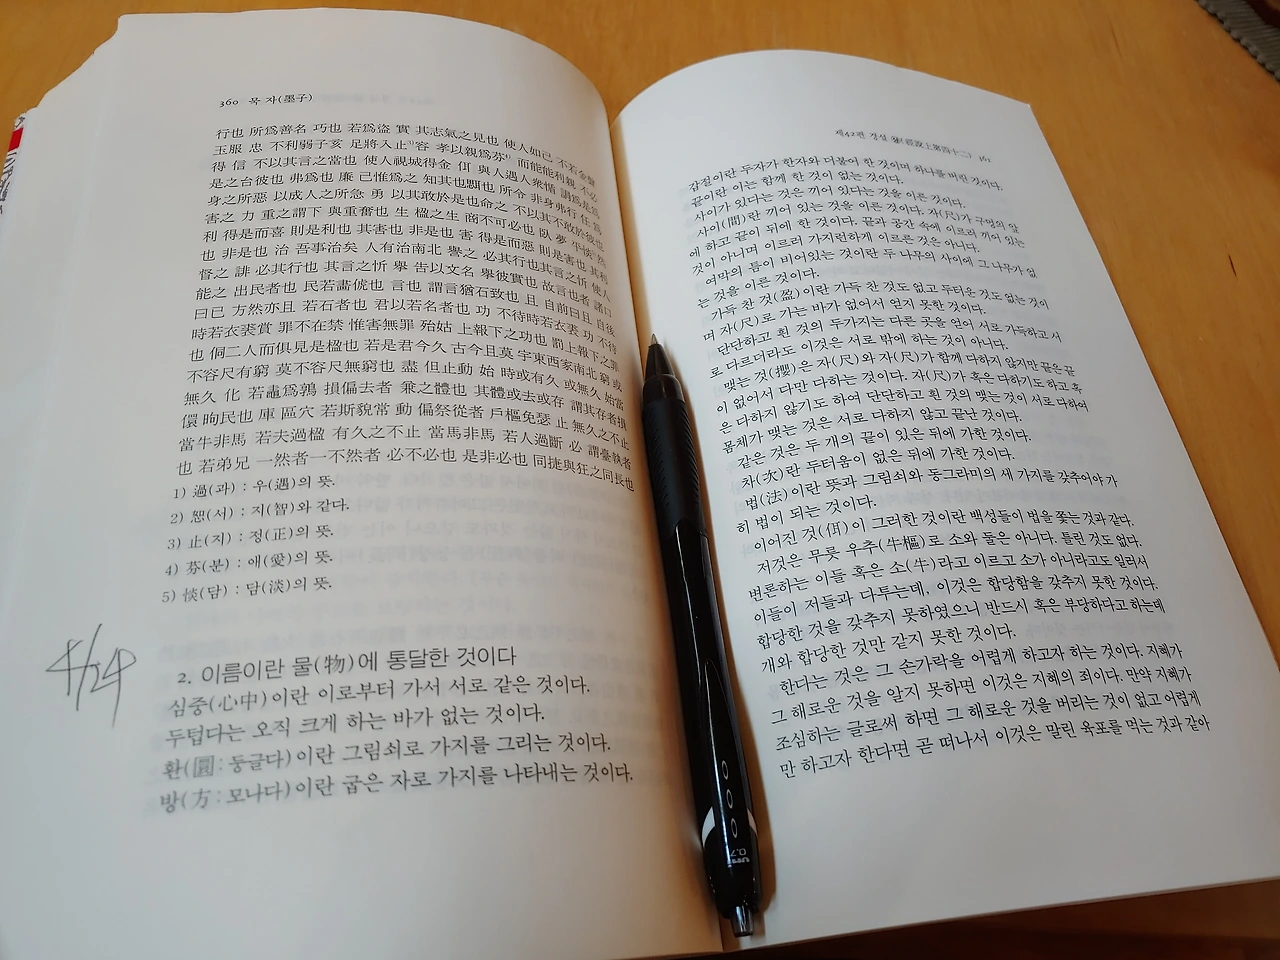 360 묵 자(墨子)
行也 所爲善名 巧也 若爲盜 實 其志氣之見也 使人如己 不若金聲
玉服 忠 不利弱子亥 足將入止 容 孝以親爲芬 而能能利親 不必
得 信 不以其言之當也 使人視城得金 佴 與人遇人衆𢝊 謂爲是爲
是之台彼也 弗爲也 廉 己惟爲之 知其也 也 所令 非身弗行 任 爲
身之所惡 以成人之所急 勇 以其敢於是也命之 不以其不敢於彼也
害之 力 重之謂下 與重奮也 生 楹之生 商不可必也 臥 夢 平 然
利 得是而喜 則是利也 其害也 非是也 害 得是而惡 則是害也 其利
也 非是也 治 吾事治矣 人有治南北 譽之 必其行也其言之忻 使人
督之 誹 必其行也 其言之忻 擧 告以文名 擧彼實也 故言也者 諸口
能之 出民者也 民若畵俿也 言也 謂言猶石致也 且 自前曰且 自後
曰已 方然亦且 若石者也 君以若名者也 功 不待時若衣裘 功 不待
時若衣裘賞 罪不在禁 惟害無罪 殆姑 上報下之功也 罰上報下之罪
也 侗二人而俱見是楹也 若是君今久 古今且莫 宇東西家南北 窮 或
不容尺有窮 莫不容尺無窮也 盡 但止動 始 時或有久 或無久 始當
無久 化 若鼃爲鶉 損偏去者 兼之體也 其體或去或存 謂其存者損
儇 昫民也 庫 區穴 若斯貌常 動 偏祭從者 戶樞免瑟 止 無久之不止
當牛非馬 若夫過楹 有久之不止 當馬非馬 若人過斷 必 謂臺執者
也 若弟兄 一然者一不然者 必不必也 是非必也 同捷與狂之同長也
1) 過(과) : 우(遇)의 뜻.
2) 恕(서) : 지(智)와 같다.
3) 止(지) : 정(正)의 뜻.
4) 芬(분) : 애(愛)의 뜻.
5) 惔(담) : 담(淡)의 뜻.
4/24
2. 이름이란 물(物)에 통달한 것이다
심중(心中)이란 이로부터 가서 서로 같은 것이다.
두텁다는 오직 크게 하는 바가 없는 것이다.
환(圓:둥글다)이란 그림쇠로 가지를 그리는 것이다.
방(方:모나다)이란 굽은 자로 가지를 나타내는 것이다.
제42편 경설 상(經說上第四十二) 361
갑절이란 두자가 한자와 더불어 한 것이며 하나를 버린 것이다.
끝이란 이는 함께 한 것이 없는 것이다.
사이가 있다는 것은 끼어 있다는 것을 이른 것이다.
사이(間)란 끼어 있는 것을 이른 것이다. 자(尺)가 구멍의 앞
에 하고 끝이 뒤에 한 것이다. 끝과 공간 속에 이르러 끼어 있는
것이 아니며 이르러 가지런하게 이르른 것은 아니다.
여막의 틈이 비어있는 것이란 두 나무의 사이에 그 나무가 없
는 것을 이른 것이다.
가득 찬 것(盈)이란 가득 찬 것도 없고 두터운 것도 없는 것이
며 자(尺)로 가는 바가 없어서 얻지 못한 것이다.
단단하고 흰 것의 두가지는 다른 곳을 얻어 서로 가득하고 서
로 다르더라도 이것은 서로 밖에 하는 것이 아니다.
맺는 것(攖)은 자(尺)와 자(尺)가 함께 다하지 않지만 끝은 끝
이 없어서 다만 다하는 것이다. 자(尺)가 혹은 다하기도 하고 혹
은 다하지 않기도 하여 단단하고 흰 것의 맺는 것이 서로 다하여
몸체가 맺는 것은 서로 다하지 않고 끝난 것이다.
같은 것은 두 개의 끝이 있은 뒤에 가한 것이다.
차(次)란 두터움이 없은 뒤에 가한 것이다.
법(法)이란 뜻과 그림쇠와 동그라미의 세 가지를 갖추어야 가
히 법이 되는 것이다.
이어진 것(佴)이 그러한 것이란 백성들이 법을 쫓는 것과 같다.
저것은 무릇 우추(牛樞)로 소와 둘은 아니다. 틀린 것도 없다.
변론하는 이들 혹은 소(牛)라고 이르고 소가 아니라고도 일러서
이들이 저들과 다투는데, 이것은 합당함을 갖추지 못한 것이다.
합당한 것을 갖추지 못하였으니 반드시 혹은 부당하다고 하는데
개와 합당한 것만 같지 못한 것이다.
한다는 것은 그 손가락을 어렵게 하고자 하는 것이다. 지혜가
그 해로운 것을 알지 못하면 이것은 지혜의 죄이다. 만약 지혜가
조심하는 글로써 하면 그 해로운 것을 버리는 것이 없고 어렵게
만 하고자 한다면 곧 떠나서 이것은 말린 육포를 먹는 것과 같아
uni
0.7